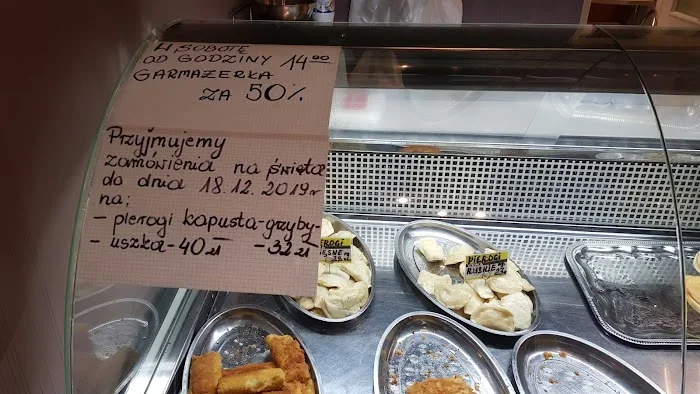 W SOBOTĘ
OD GODZINY 14⁰⁰
GARMAŻERKA
ZA 50%
Przyjmujemy
zamówienia na święta
do dnia 18.12.2019r
na;
- pierogi kapusta-grzyby-
- uszka-40zł -32zł
PIEROGI
PIEROGI
RUSKIE